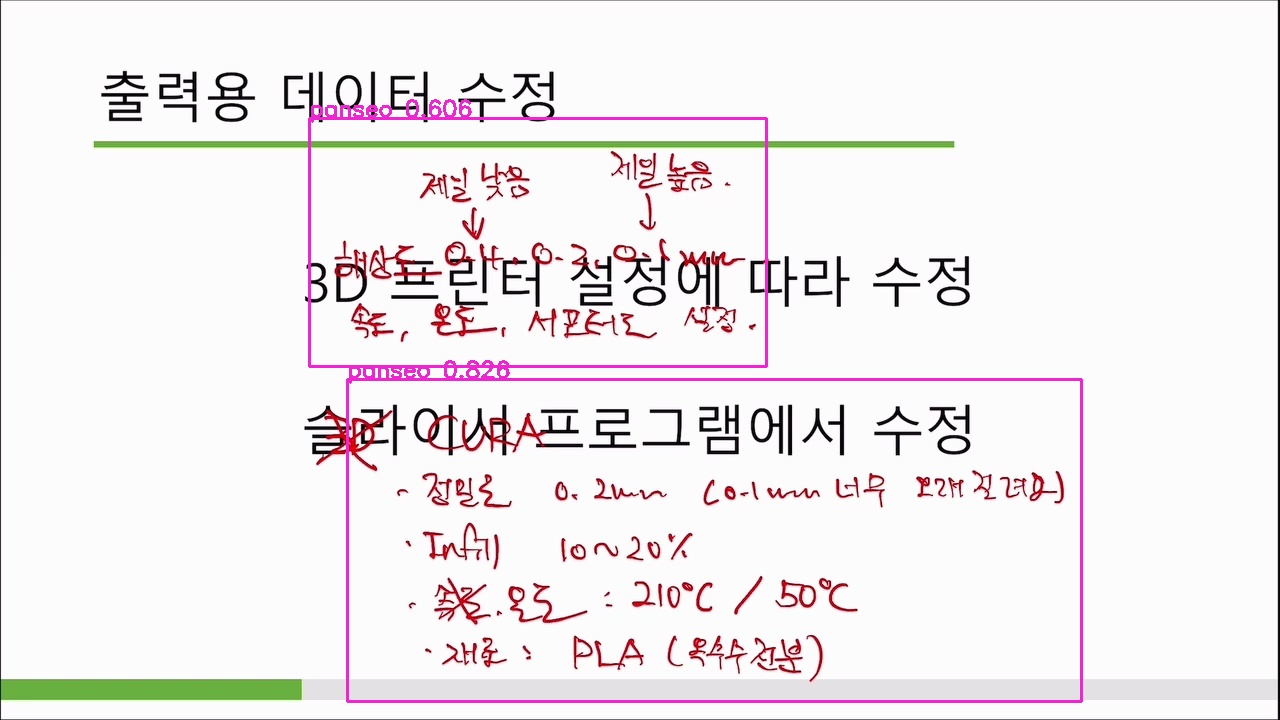 출력용 데이터 수정
panseo 0.606
제일 낮음 제일 높음.
해상도 0.4, 0.2, 0.1mm
3D 프린터 설정에 따라 수정
속도, 온도, 서포터도 설정.
panseo 0.826
슬라이서 프로그램에서 수정
3D CURA
· 정밀도 0.2mm (0.1mm 너무 오래 걸려요)
· Infill 10~20%
· 속도, 온도 : 210℃ / 50℃
· 재료 : PLA (옥수수 전분)